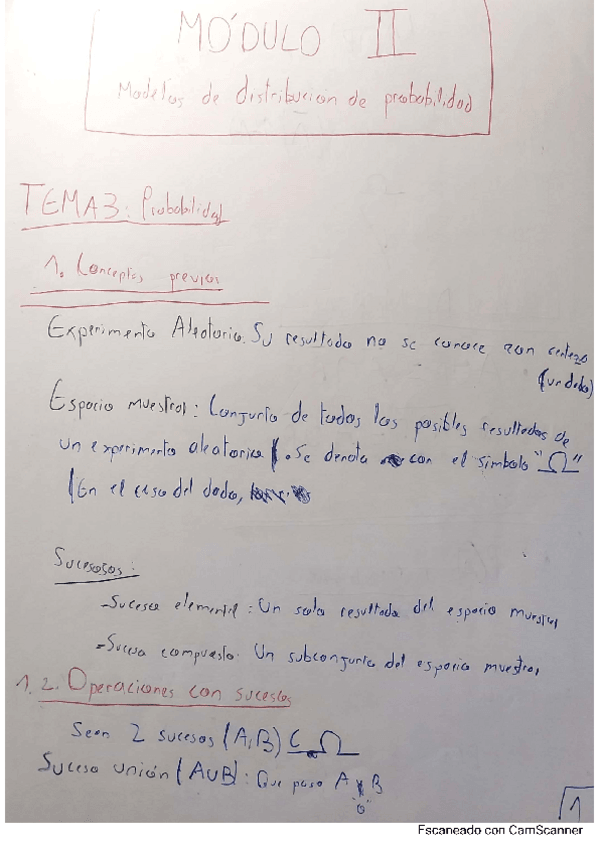 MÓDULO II
Modelos de distribución de probabilidad
TEMA 3: Probabilidad
1. Conceptos previos
Experimento Aleatorio. Su resultado no se conoce con certeza
(un dado)
Espacio muestral: Conjunto de todos los posibles resultados de
un experimento aleatorio. Se denota con el símbolo "Ω"
(En el caso del dado,
Sucesos:
-Suceso elemental: Un solo resultado del espacio muestral
-Suceso compuesto. Un subconjunto del espacio muestral
1.2. Operaciones con sucesos
Sean 2 sucesos (A,B) ⊆ Ω
Suceso unión (A∪B): Que pase A B
"o"
1
Escaneado con CamScanner